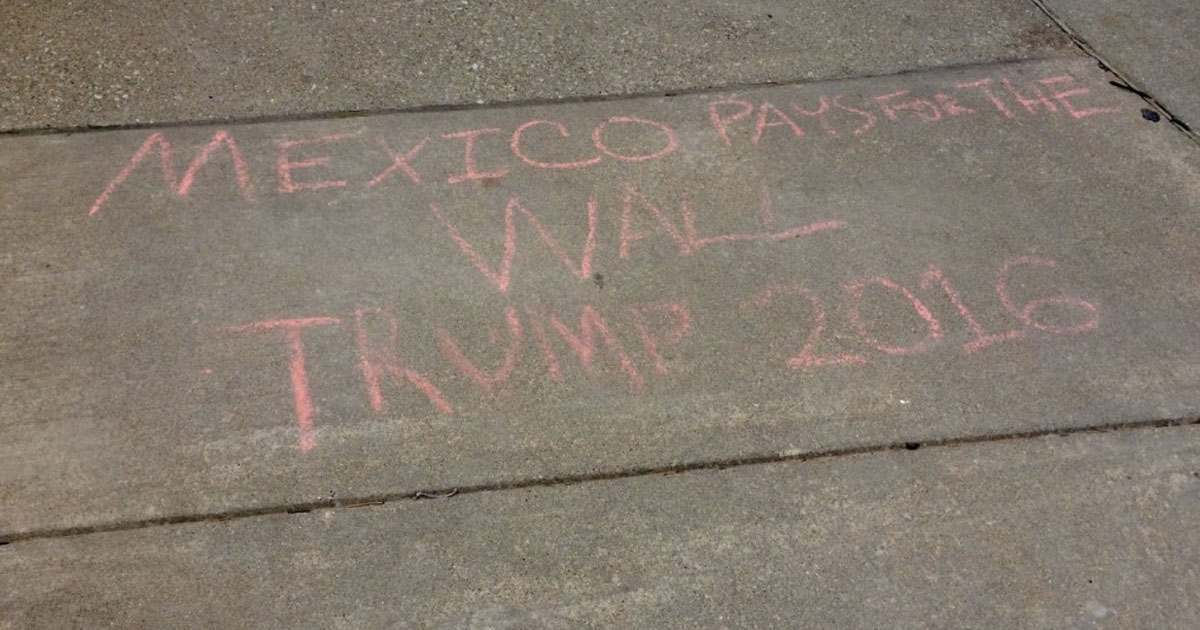 MEXICO PAYS FOR THE
WALL
TRUMP 2016